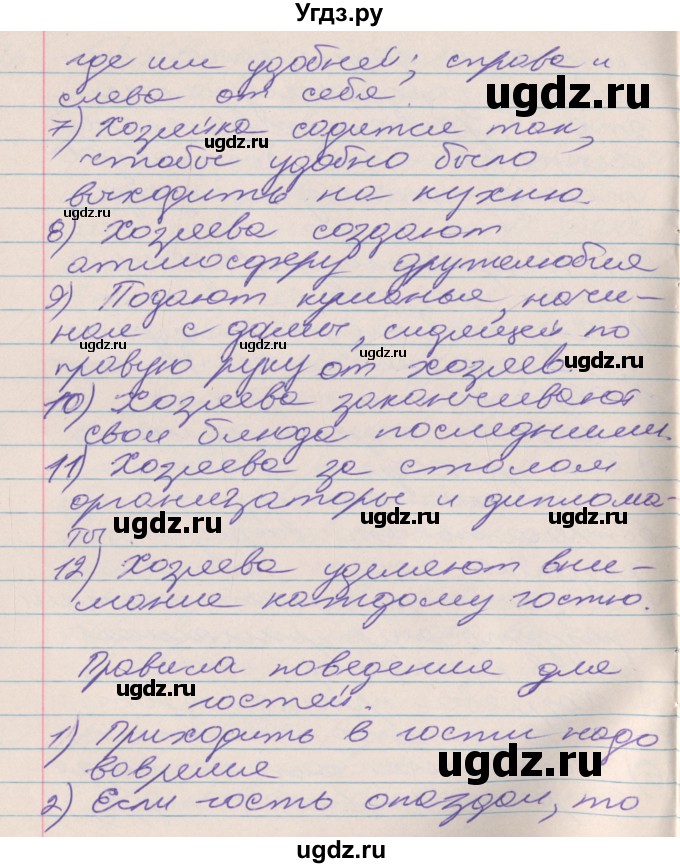 Угдз.ру
где им удобней; справа и
слева от себя
7) Хозяйка садится так,
чтобы удобно было
выходить на кухню.
8) Хозяева создают
атмосферу дружелюбия
9) Подают кушанья, начи-
ная с дамы, сидящей по
правую руку от хозяев.
10) Хозяева заканчивают
свои блюда последними.
11) Хозяева за столом
организаторы и диплома-
ты.
12) Хозяева уделяют вни-
мание каждому гостю.
Правила поведения для
гостей.
1) Приходить в гости надо
вовремя
2) Если гость опоздал, то
ugdz.ru